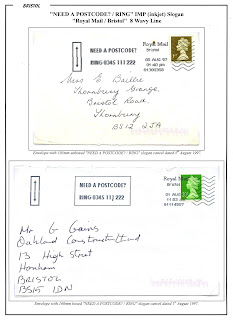 BRISTOL
"NEED A POSTCODE? / RING" IMP (inkjet) Slogan
"Royal Mail / Bristol" 8 Wavy Line
NEED A POSTCODE?
RING 0345 111 222
Royal Mail
Bristol
05 AUG 97
01:40 pm
Mrs E Baillie
Thornbury Grange,
Bristol Road,
Thornbury
BS12 2JA
Envelope with 100mm unboxed "NEED A POSTCODE? / RING" slogan cancel dated 5th August 1997.
NEED A POSTCODE?
RING 0345 111 222
Royal Mail
Bristol
Mr G Gains
Oakland Construction Ltd
13 High Street
Honham
BRISTOL
BS15 1DN
August 1997.